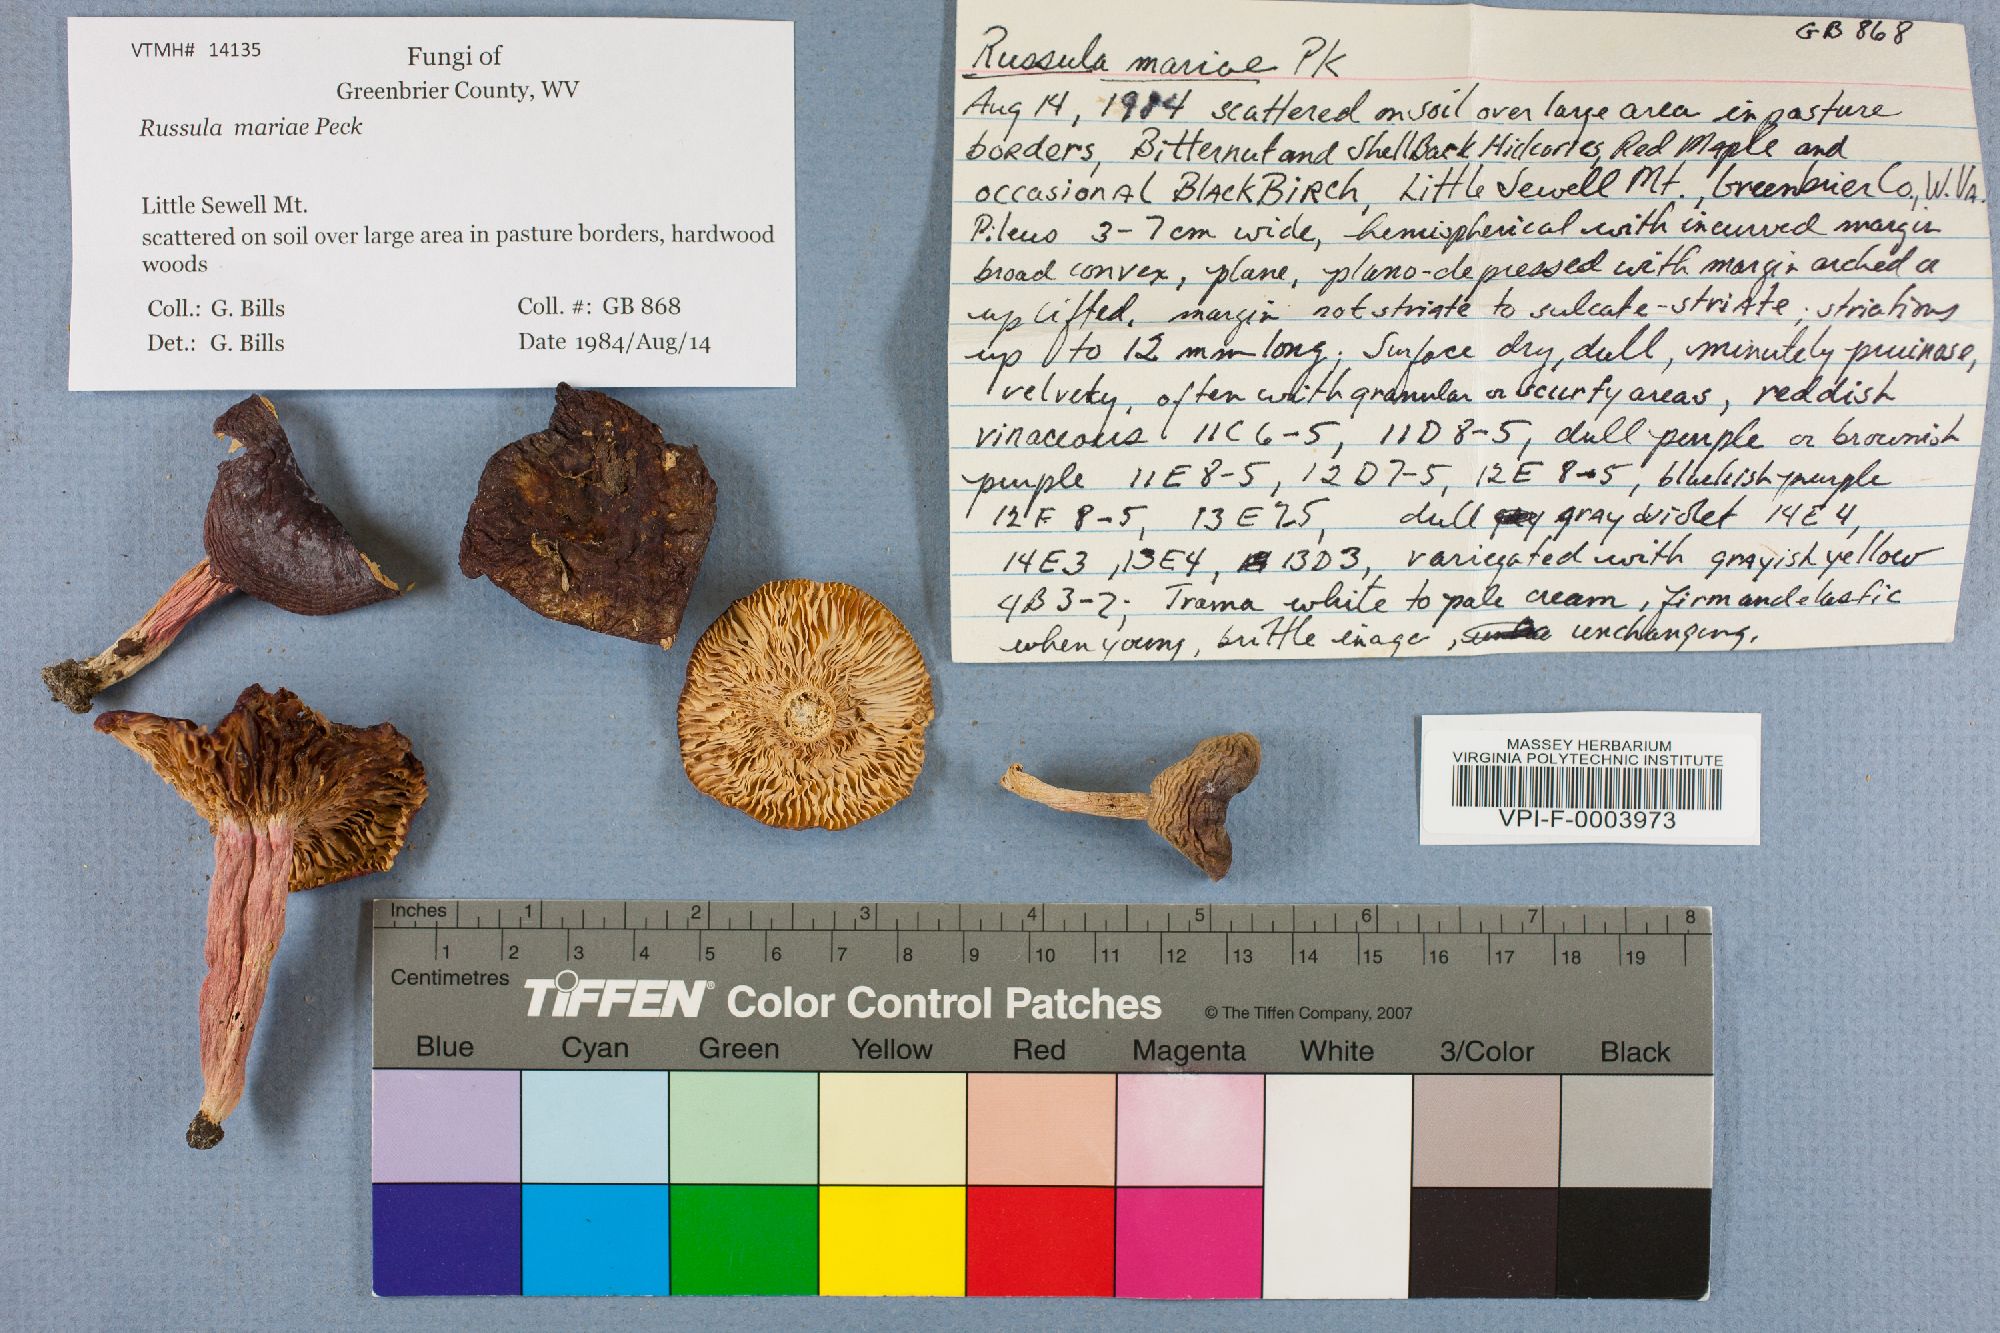 VTMH# 14135
Fungi of
Greenbrier County, WV
Russula mariae Peck
Little Sewell Mt.
scattered on soil over large area in pasture borders, hardwood
woods
Coll.: G. Bills
Coll. #: GB 868
Det.: G. Bills
Date 1984/Aug/14
GB 868
Russula mariae Pk
Aug 14, 1984 scattered on soil over large area in pasture
borders, Bitternut and ShellBark Hickories, Red Maple and
occasional Black Birch, Little Sewell Mt., Greenbrier Co., W. Va.
Pileus 3-7 cm wide, hemispherical with incurved margin
broad convex, plane, plano-depressed with margin arched or
uplifted, margin not striate to sulcate-striate, striations
up to 12 mm long; Surface dry, dull, minutely pruinose,
velvety, often with granular or scurfy areas, reddish
vinaceous 11C6-5, 11D8-5, dull purple or brownish
purple 11E8-5, 12D7-5, 12E8-5, blackish purple
12F8-5, 13E7-5, dull gray violet 14E4,
14E3, 13E4, 13D3, variegated with grayish yellow
4B3-2; Trama white to pale cream, firm and elastic
when young, brittle in age, unchanging.
MASSEY HERBARIUM
VIRGINIA POLYTECHNIC INSTITUTE
VPI-F-0003973
Inches 1 2 3 4 5 6 7 8
1 2 3 4 5 6 7 8 9 10 11 12 13 14 15 16 17 18 19
Centimetres
TIFFEN® Color Control Patches © The Tiffen Company, 2007
Blue Cyan Green Yellow Red Magenta White 3/Color Black